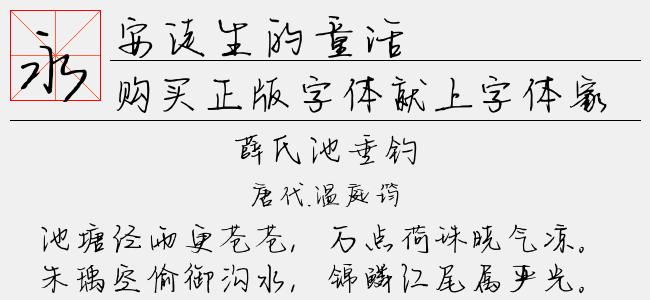 永
安徒生的童话
购买正版字体献上字体家
薛氏池垂钓
唐代.温庭筠
池塘经雨更苍苍，万点荷珠晓气凉。
朱瑀空偷御沟水，锦鳞红尾属严光。